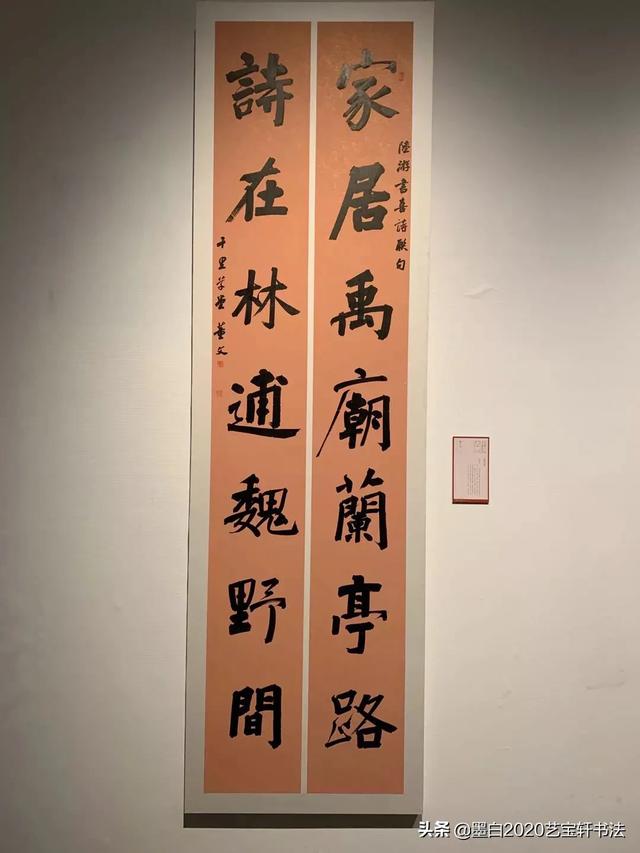 家居禹廟蘭亭路
陸游書喜詩聯句
詩在林逋魏野間
千里草堂 董文
头条 @墨白2020艺宝轩书法